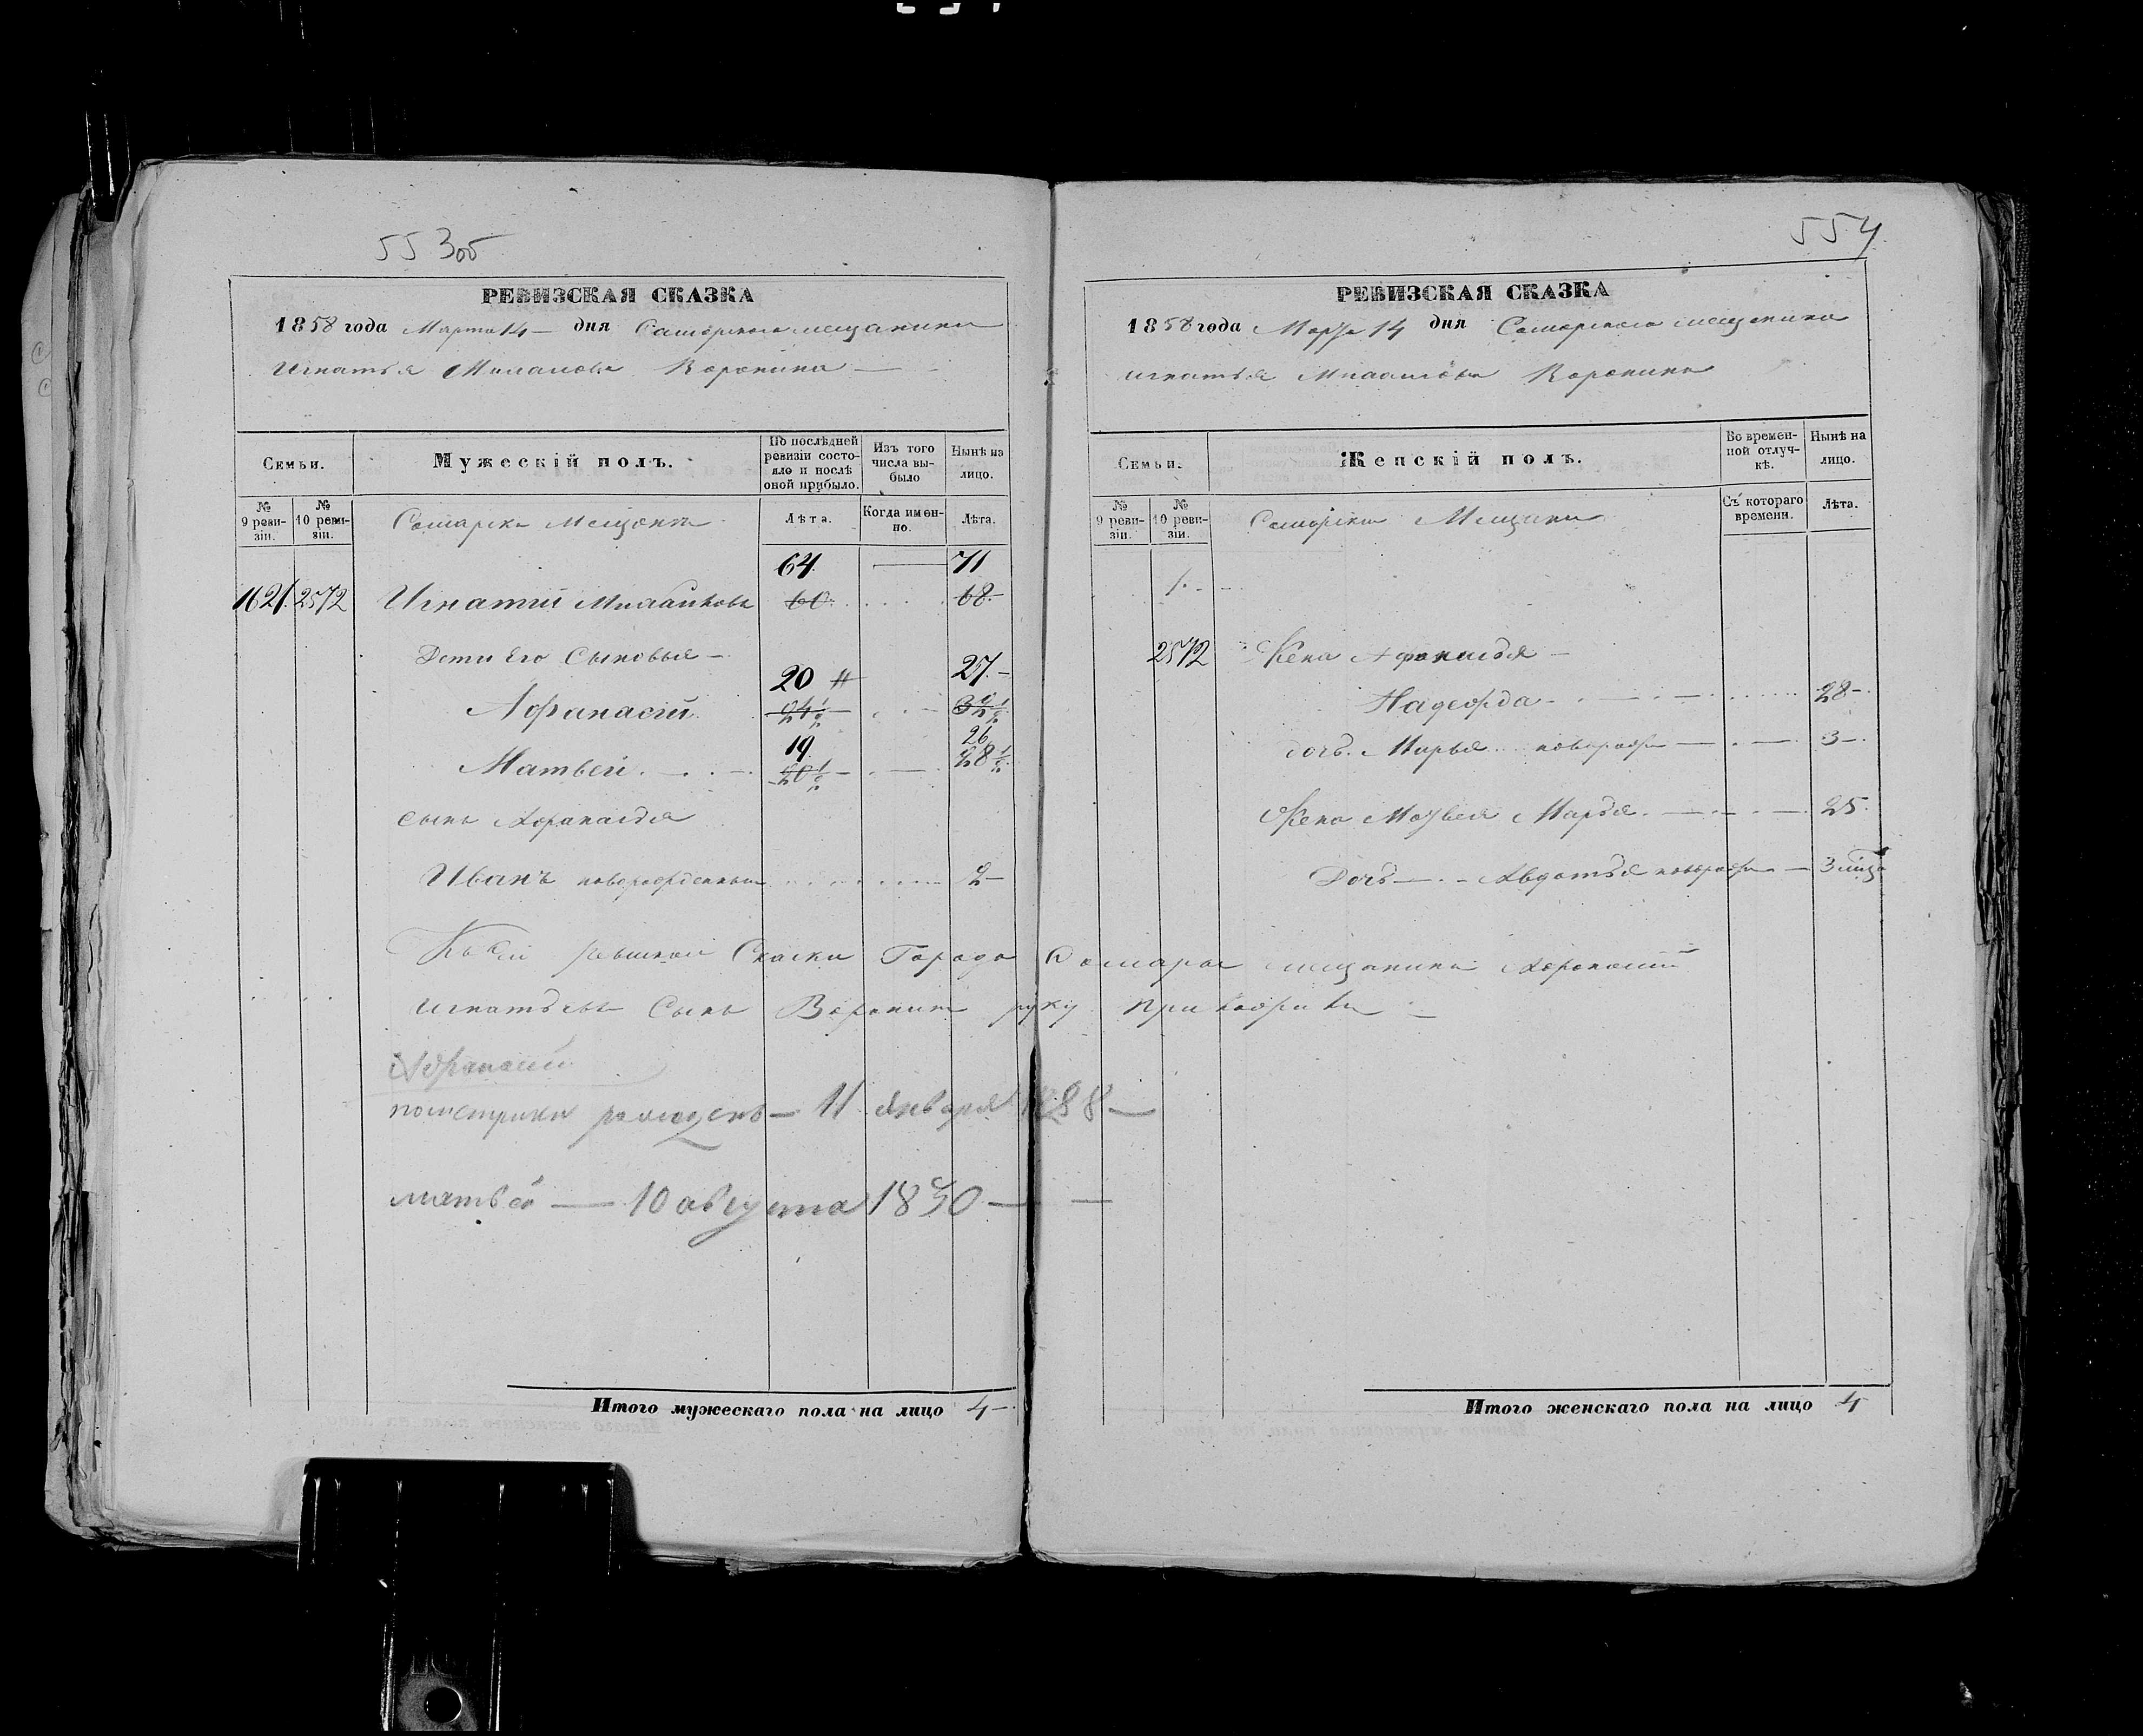 553об
РЕВИЗСКАЯ СКАЗКА
1858 года Марта 14 – дня Самарскаго мещанина
Игнатья Воронина
Семьи.
Мужескій полъ.
По послѣдней ревизіи состояло и послѣ оной прибыло.
Изъ того числа выбыло
Нынѣ на лицо.
№ 9 ревизіи.
№ 10 ревизіи.
Лѣта.
Когда именно.
Лѣта.
64 71
1621. 2572 Игнатій 60 68
Дети Его Сыновья –
20 27 –
Афанасій 24½ 32½
19 26
Матвей 20½ 28½
сынъ Афанасья
Иванъ новорожденный 2 –
Къ сей Скаски Города Самары мещанинъ Афонасий
Игнатьевъ Сынъ Воронин руку приложилъ
Афанасий
11 января
матвей — 10 августа 1830 —
Итого мужескаго пола на лицо 4 –
554
РЕВИЗСКАЯ СКАЗКА
1858 года Марта 14 дня Самарскаго мещанина
Игнатья Воронина
Семьи.
Женскій полъ.
Во временной отлучкѣ.
Нынѣ на лицо.
№ 9 ревизіи.
№ 10 ревизіи.
Съ котораго времени.
Лѣта.
1.
2572 Жена Афанасья –
Надежда 28 –
дочь Марья 3 –
Жена Матвея Марья 25
Дочь Авдотья 3
Итого женскаго пола на лицо 4